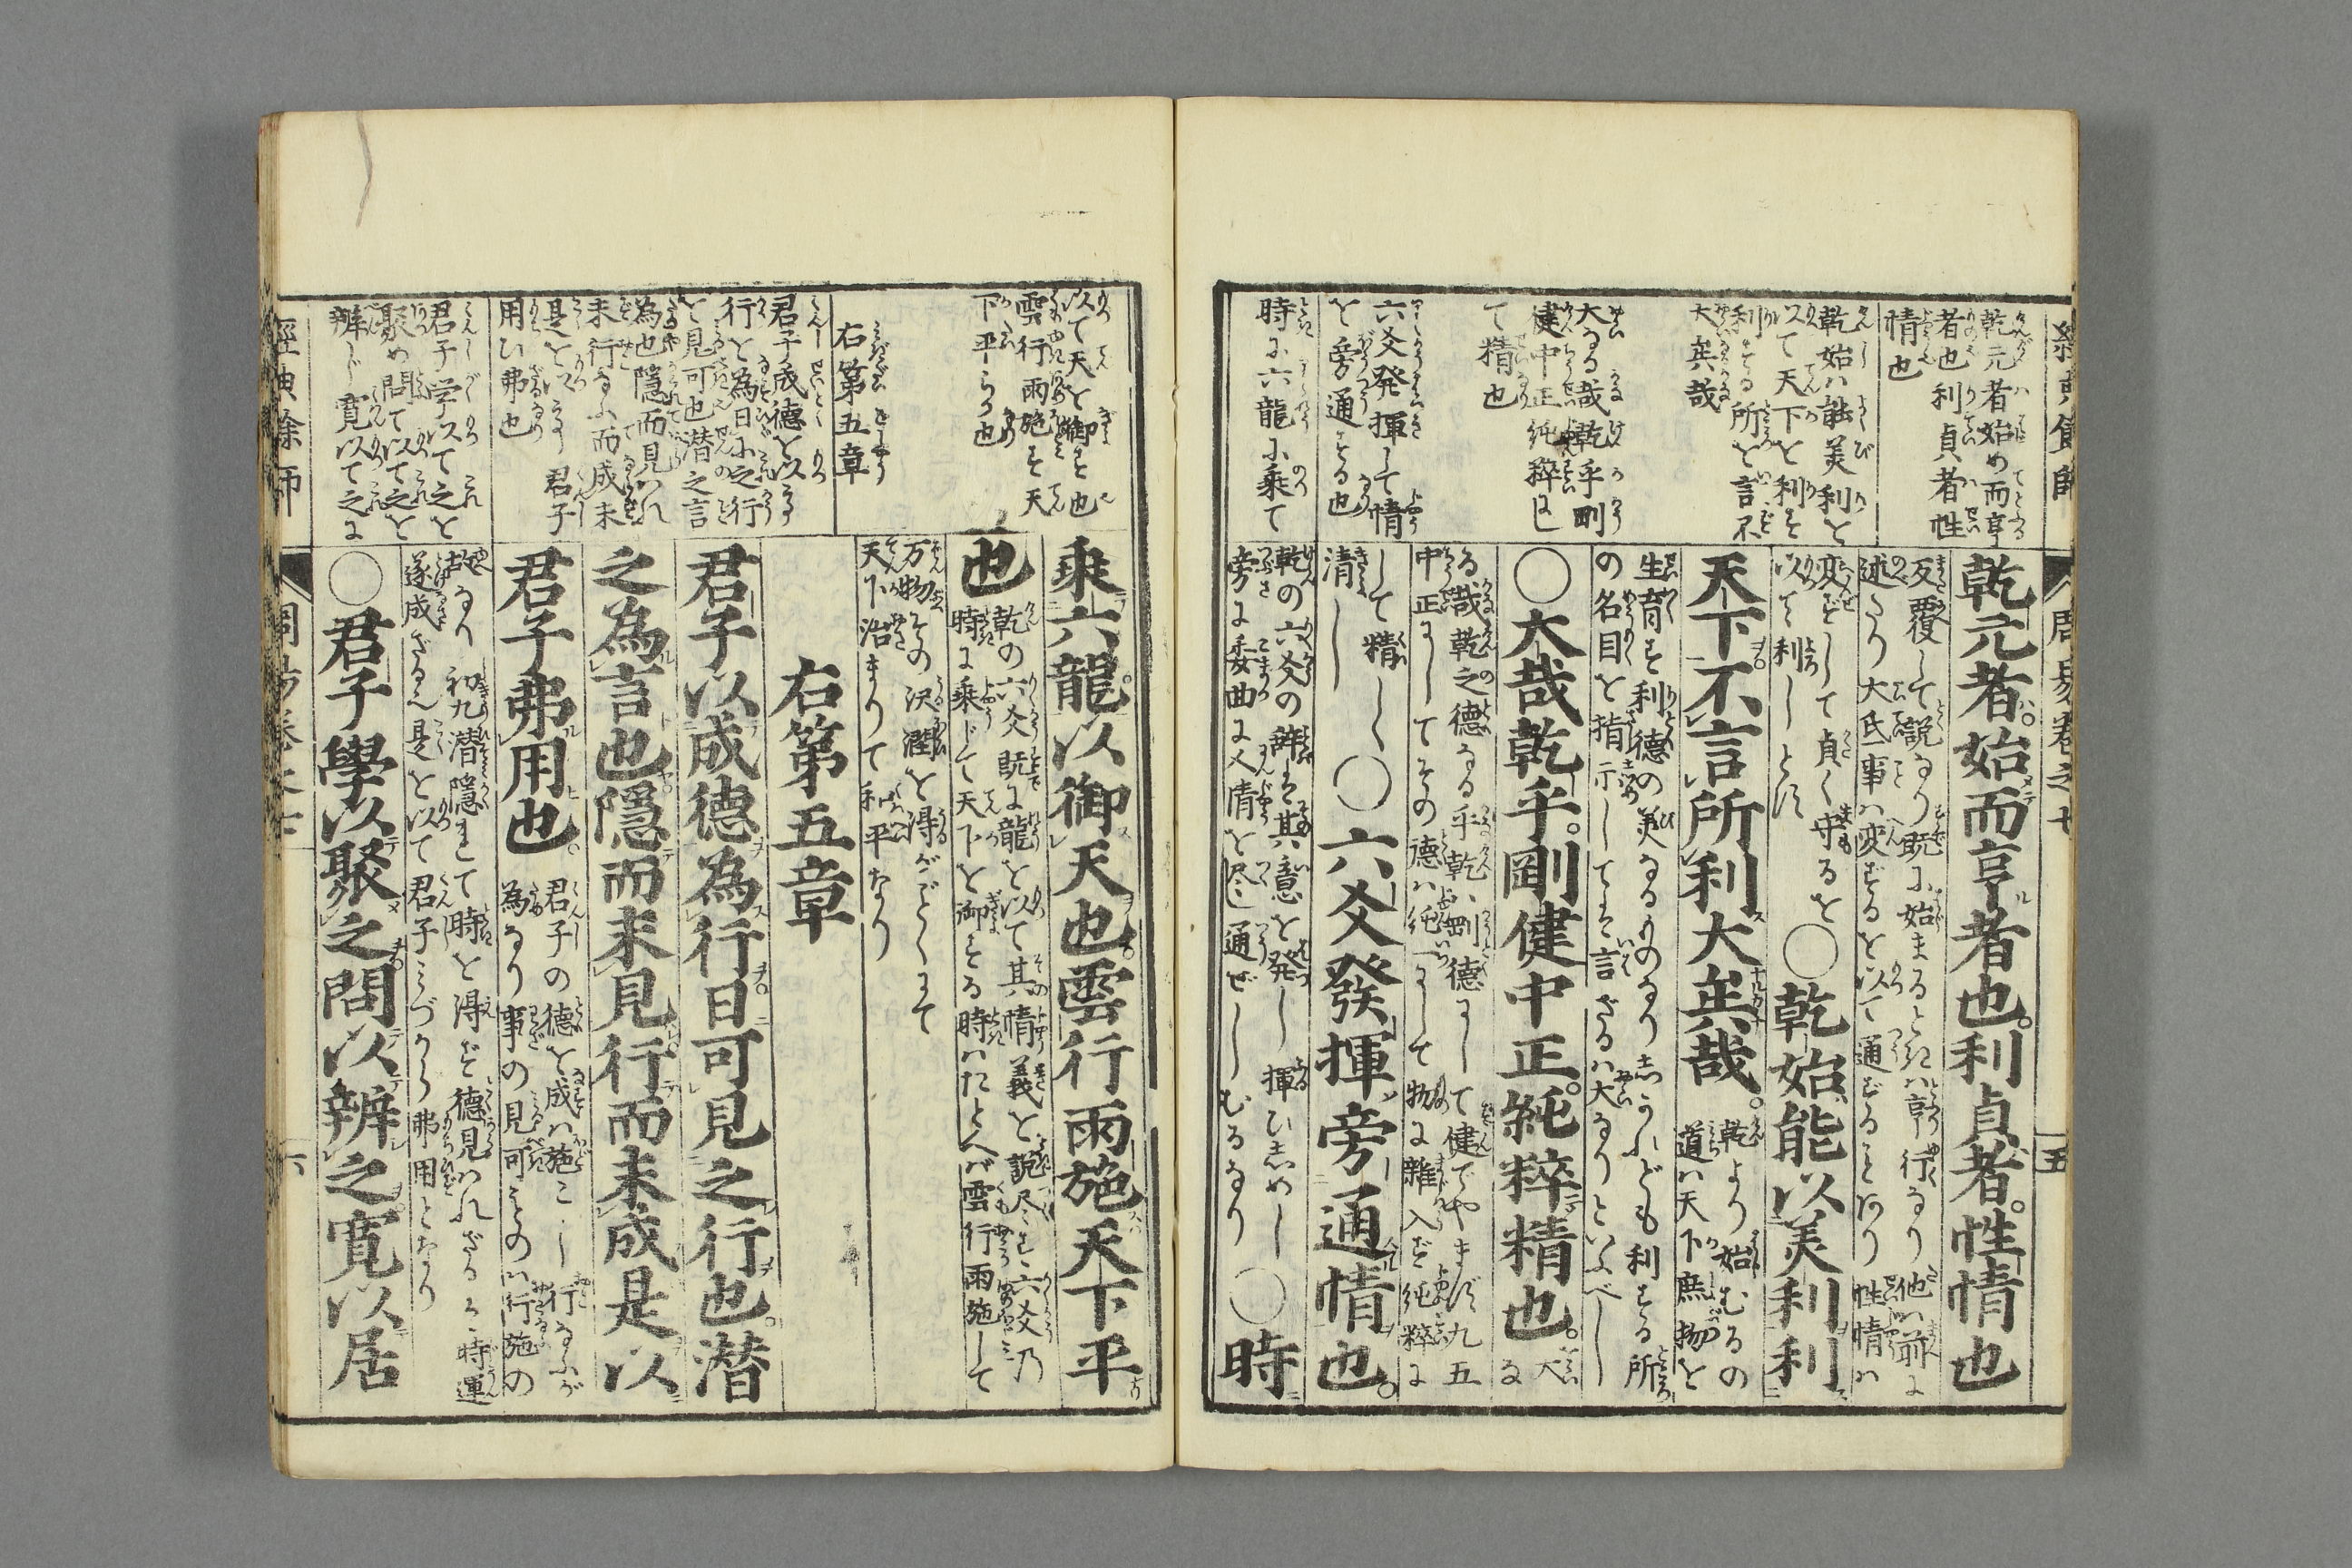 乾元者始而亨者也利貞者性情也
反覆して説なり既に始まるときは亨行なり他は前に
述たり大氏事は変ずるを以て通ずることあり性情は
変ぜずして貞く守るを○乾始能以美利利
以て利しとす
天下不言所利大矣哉
乾より始むるの
道は天下庶物を
生育す利徳の美なるものなり
しかふども利する所
の名目を指示してそ言ざるは大なりといふべし
○大哉乾乎剛健中正純粹精也
大な
る哉乾之徳なる乎乾は剛徳にして健でやまず九五
中正にしてその徳は純一にして物に雑入ず純粋に
して精し○六爻發揮旁通情也
清し
乾の六爻の辞は其意を発し揮ひしめし○時
旁に委曲に爻情を尽し通ぜしむるなり
乾元者始め而亨
者也利貞者性
情也
乾始は能美利を
以て天下を利す
利する所を言不
大矣哉
大なる哉乾乎剛
健中正純粋にし
て精也
六爻発揮して情
を旁通する也
時に六龍に乗て
周易巻之七
五
乘六龍以御天也雲行雨施天下平
也
乾の六爻既に龍を以て其情義を説尽す六爻乃
時に乗じて天下を御する時はたとへば雲行雨施して
万物その沢潤を得がごとくにて
天下治まりて和平なり
右第五章
君子以成德為行日可見之行也潛
之為言也隱而未見行而未成是以
君子弗用也
君子の徳を成は施こし行なふが
為なり事の見可ものは行施の
故なり初九潜隠れて時を得ず徳見はれざるは時運
遂成ざるん是を以て君子みづから弗用となり
○君子學以聚之問以辨之寬以居
以て天を御する也
雲行雨施し天
下平らか也
右第五章
君子成徳を以
行を為日に之行
を見可也潜之言
為也隠而見れ
未行なふ而成未
是を以君子
用ひ弗也
君子学以て之を
聚め問て以て之を
辨じ寛以て之に
經典余師
周易巻之七
六